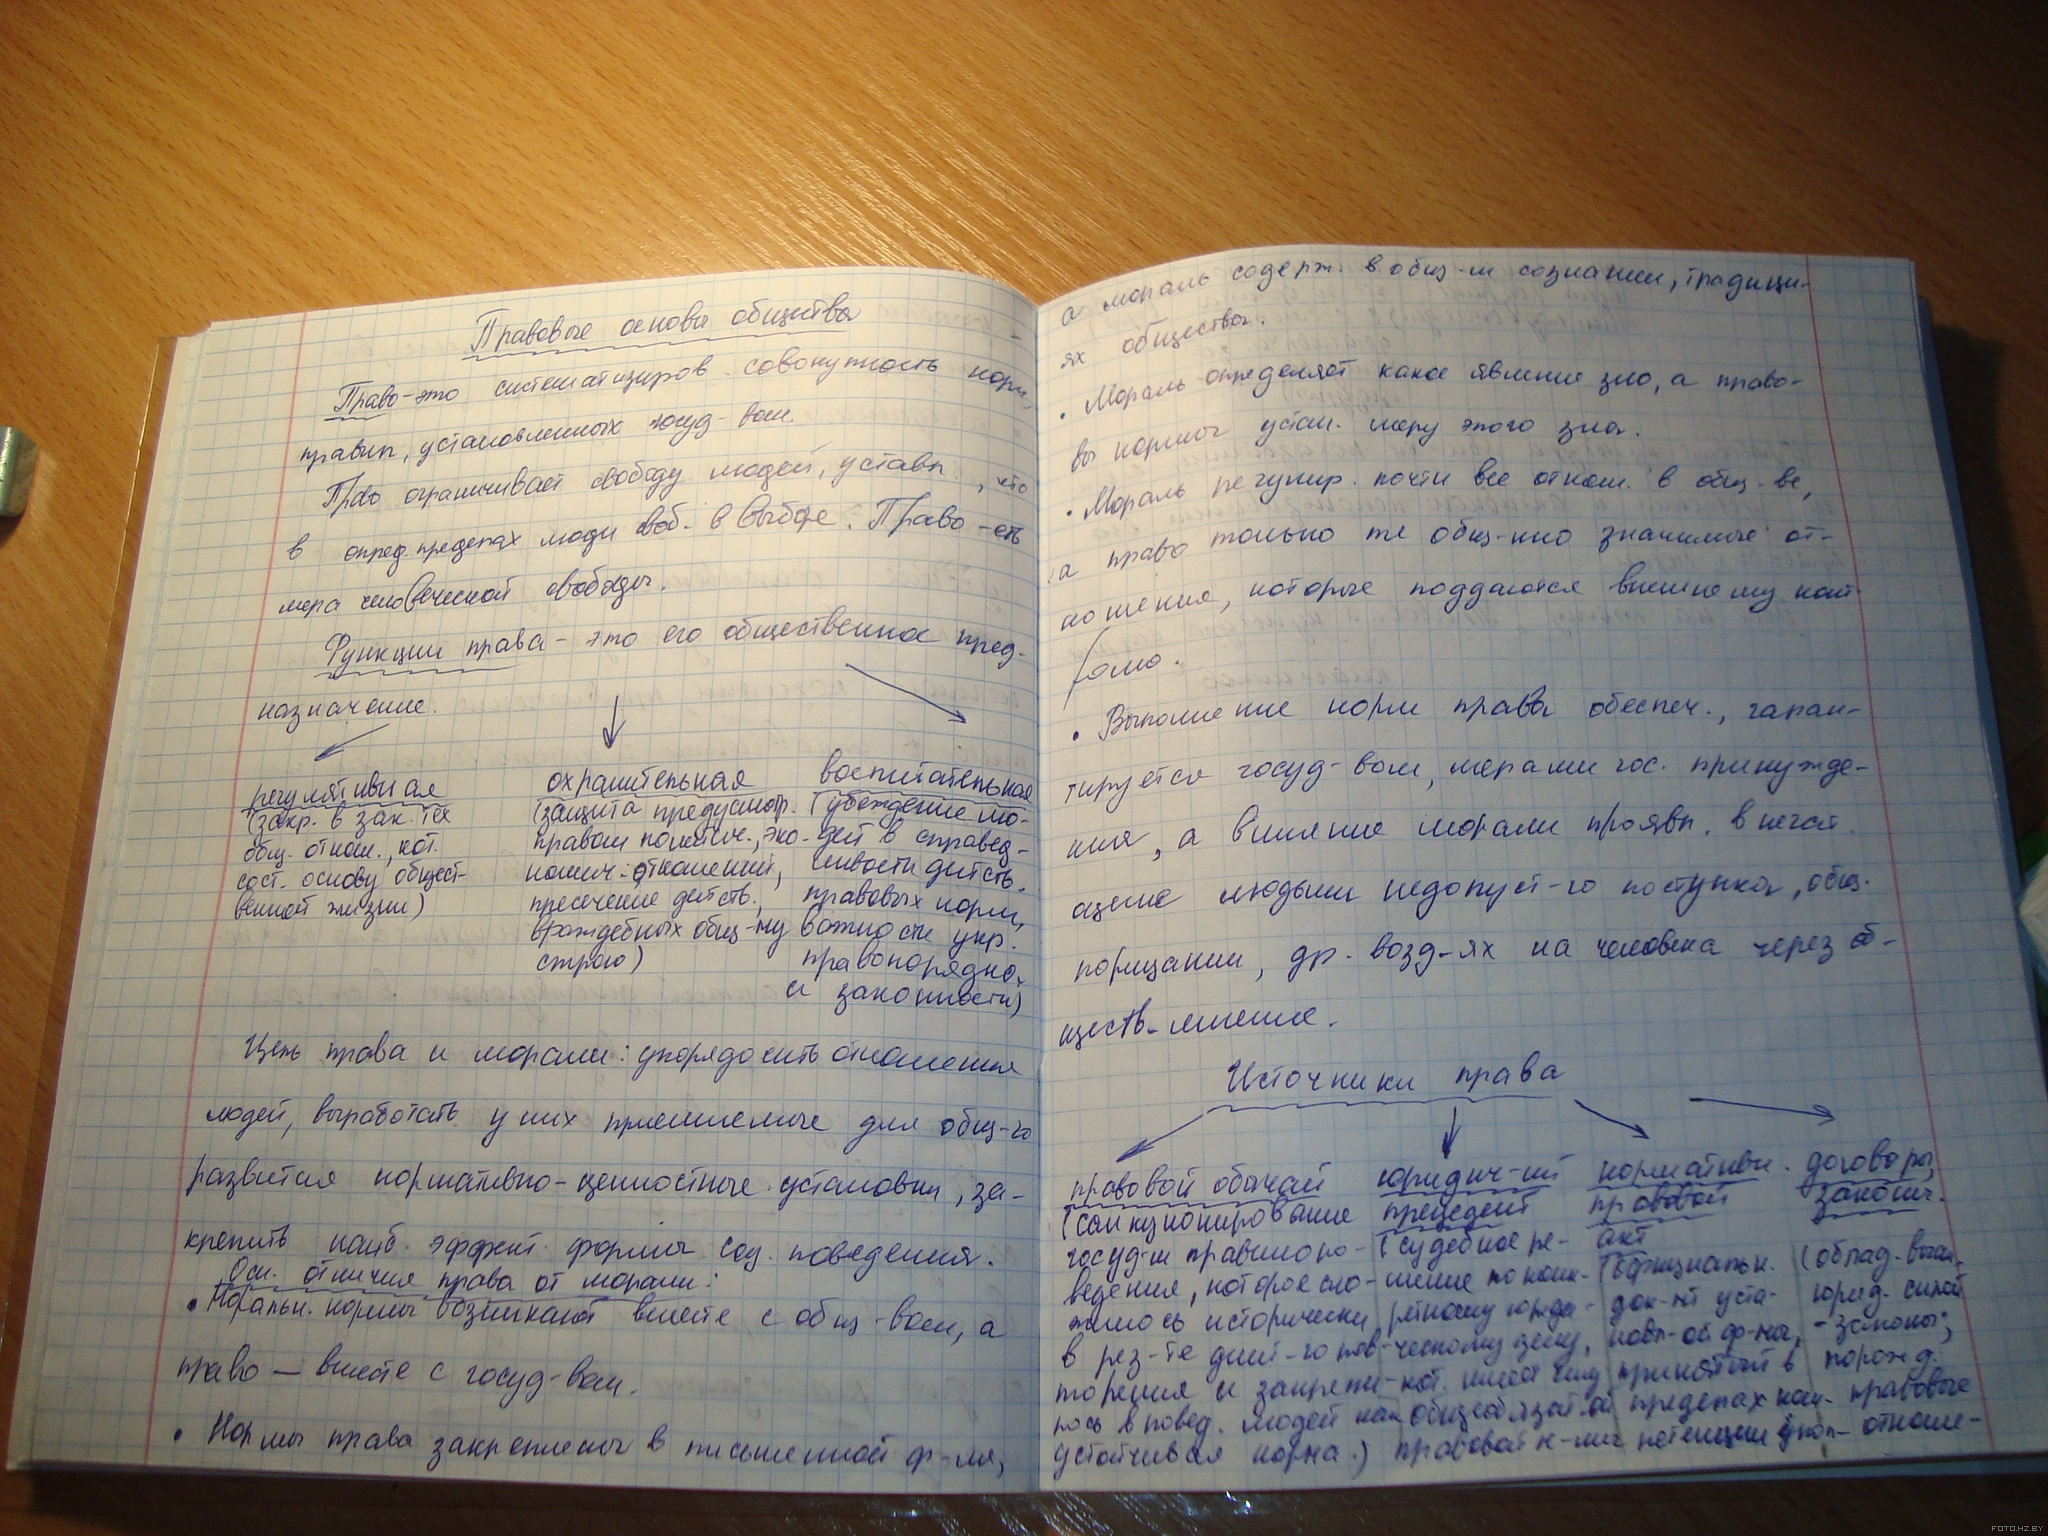 Правовые основы общества
Право - это систематизиров. совокупность норм,
правил, установленных госуд-вом.
Право ограничивает свободу людей, уставл., что
в опред. пределах люди своб. в выборе. Право - есть
мера человеческой свободы.
Функции права - это его общественное пред-
назначение.
регулятивная
(закр. в зак. тех
общ. отнош., кот.
сост. основу общест-
венной жизни)
охранительная
(защита предусмотр.
правом политич., эко-
номич. отношений,
пресечение действ.,
враждебных общ-му
строю)
воспитательная
(убеждение лю-
дей в справед-
ливости действ.
правовых норм,
важности укр.
правопорядка
и законности)
Цель права и морали: упорядочить отношения
людей, выработать у них приемлемые для общ-го
развития нормативно-ценностные установки, за-
крепить наиб. эффект. формы соц. поведения.
Осн. отличия права от морали:
• Моральн. нормы возникают вместе с общ-вом, а
право — вместе с госуд-вом.
• Нормы права закреплены в письменной ф-ме,
а мораль содерж. в общ-м сознании, традици-
ях общества.
• Мораль определяет какое явление зло, а право-
вы нормы устан. меру этого зла.
• Мораль регулир. почти все отнош. в общ-ве,
а право только те общ-нно значимые от-
ношения, которые поддаются внешнему конт-
ролю.
• Выполнение норм права обеспеч., гаран-
тируется госуд-вом, мерами гос. принужде-
ния, а влияние морали проявл. в негат.
оценке людьми недопуст-го поступка, общ.
порицании, др. возд-ях на человека через об-
ществ. мнение.
Источники права
правовой обычай
(санкционирование
госуд-м правило по-
ведения, которое сло-
жилось исторически
в рез-те длит-го пов-
торения и закрепи-
лось в повед. людей как
устойчивая норма.)
юридич-ий
прецедент
(судебное ре-
шение по конк-
ретному юриди-
ческому делу,
кот. имеет силу
общеобязат-ой
правовой н-мы
нормативн.
правовой
акт
(официальн.
док-нт уста-
новл-ой ф-мы,
принятый в
пределах ком-
петенции упол-
договоры,
законы.
(облад. высш.
юрид. силой
- законы;
порожд.
правовые
отноше-